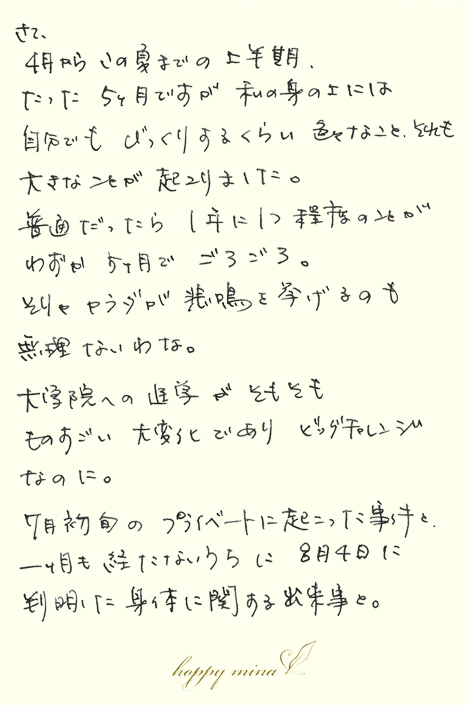 さて、
4月からこの夏までの上半期、
たった5ヶ月ですが 私の身の上には
自分でも びっくりするくらい 色々なこと、それも
大きなことが 起こりました。
普通だったら 1年に1つ程度のことが
わずか 5ヶ月で ごろごろ。
そりゃ カラダが 悲鳴を挙げるのも
無理ないわな。
大学院への進学が そもそも
ものすごい 大変化であり ビッグチャレンジ
なのに。
7月初旬の プライベートに起こった事件と、
一ヶ月も経たないうちに 8月4日に
判明した 身体に関する出来事と。
happy mina